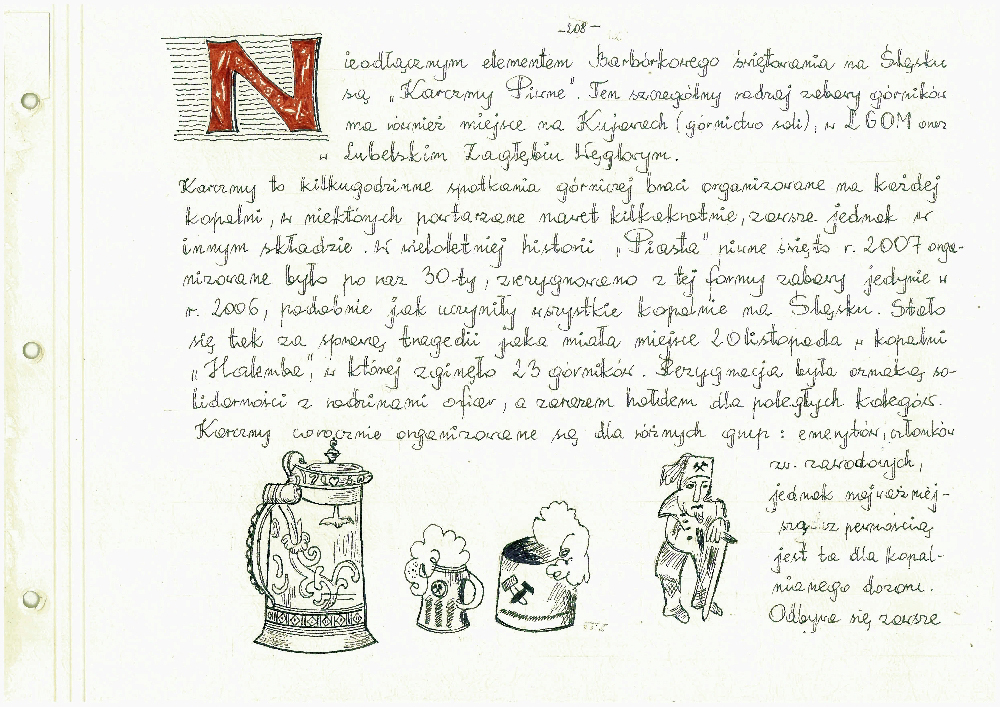 -208-
Nieodłącznym elementem Barbórkowego świętowania na Śląsku
są "Karczmy Piwne". Ten szczególny rodzaj zabawy górników
ma również miejsce na Kujawach (górnictwo soli), w LGOM oraz
w Lubelskim Zagłębiu Węglowym.
Karczmy to kilkugodzinne spotkania górniczej braci organizowane na każdej
kopalni, w niektórych powtarzane nawet kilkakrotnie, zawsze jednak w
innym składzie. W wieloletniej historii "Piasta" piwne święto r. 2007 orga-
nizowane było po raz 30-ty, zrezygnowano z tej formy zabawy jedynie w
r. 2006, podobnie jak uczyniły wszystkie kopalnie na Śląsku. Stało
się tak za sprawą tragedii jaka miała miejsce 20 listopada w kopalni
"Halemba", w której zginęło 23 górników. Rezygnacja była oznaką so-
lidarności z rodzinami ofiar, a zarazem hołdem dla poległych kolegów.
Karczmy corocznie organizowane są dla różnych grup: emerytów, członków
zw. zawodowych,
jednak najważniej-
szą z pewnością
jest ta dla kopal-
nianego dozoru.
Odbywa się zawsze